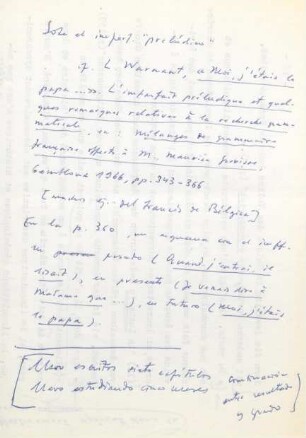 Sobre el imperf. "preludico"
cf. L. Warnant, « Moi, j'étais le
papa ... ». L'imparfait préludique et quel-
ques remarques relatives à la recherche gram-
maticale, en: Mélanges de grammaire
française offerts à M. Maurice Grevisse,
Gembloux 1966, pp. 343-366
[muchos ej. del francés de Bélgica]
En la p. 360, un esquema con el imperf.
en pasado (Quand j'entrai, il
lisait), en presente (Je venais dire à
Madame que ...), en futuro (Moi, j'étais
le papa).
[Llevo escritos siete capítulos
Llevo estudiando cinco meses
continuación
entre resultado
y grado]